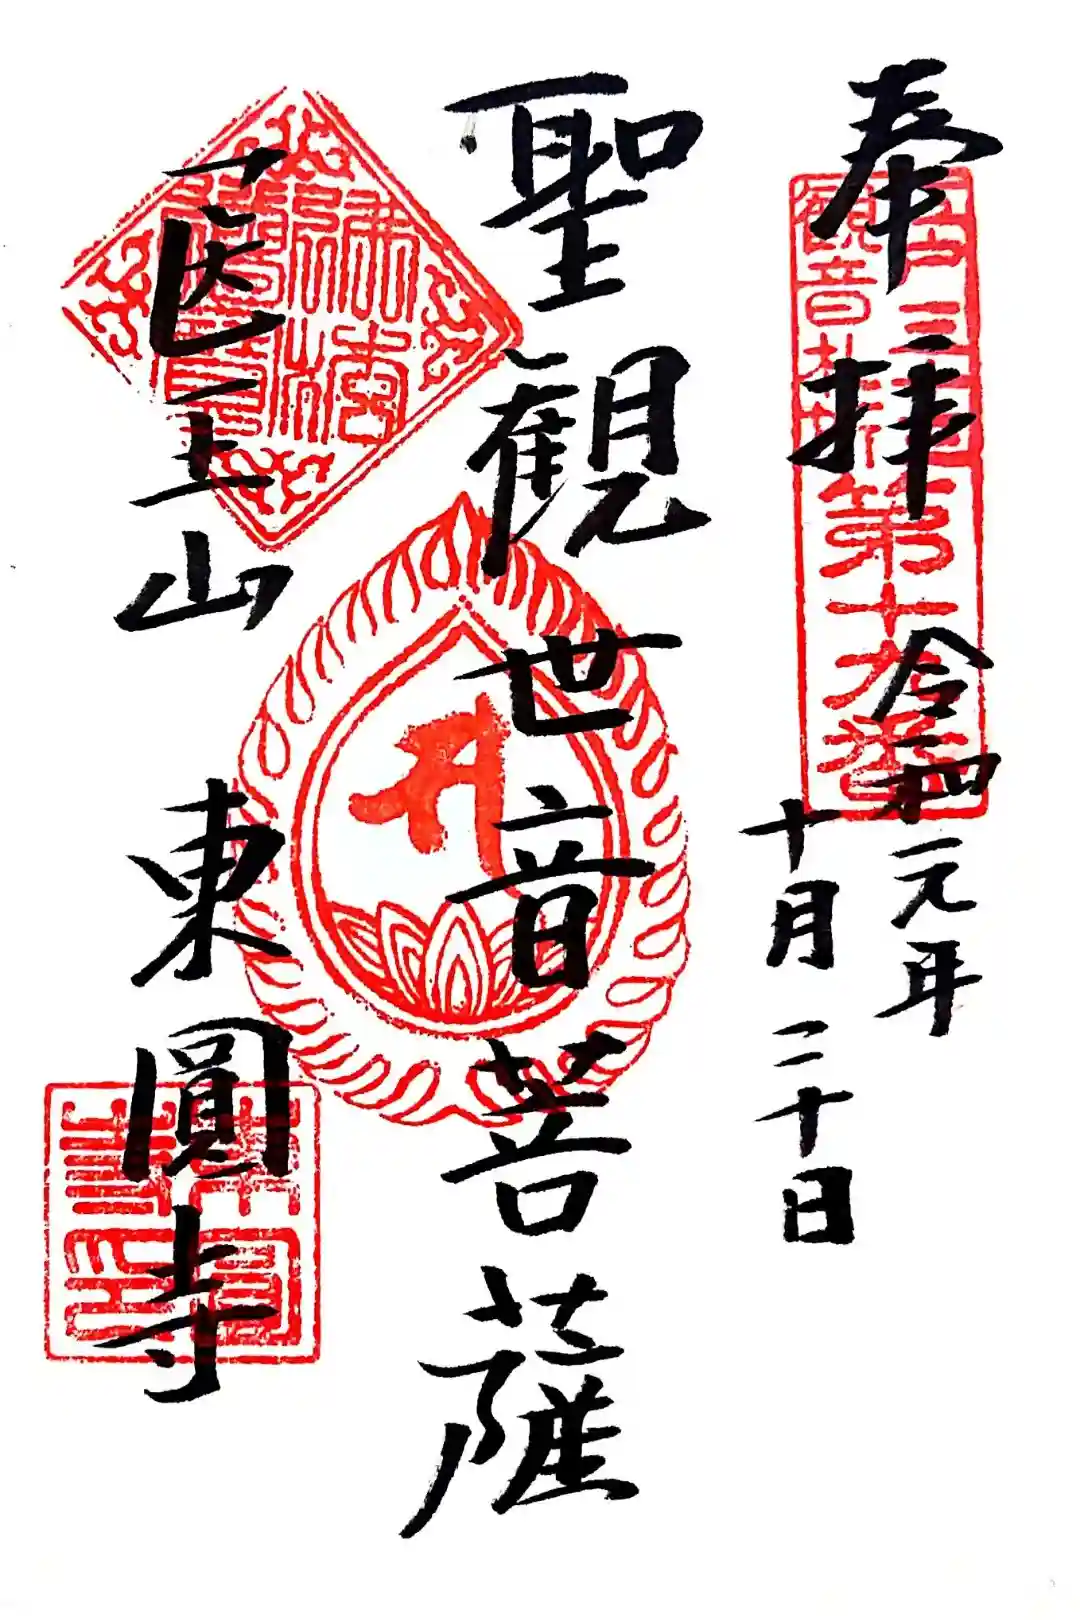 奉拝
令和元年
十月二十日
聖観世音菩薩
医王山 東圓寺
観音札所第十九番